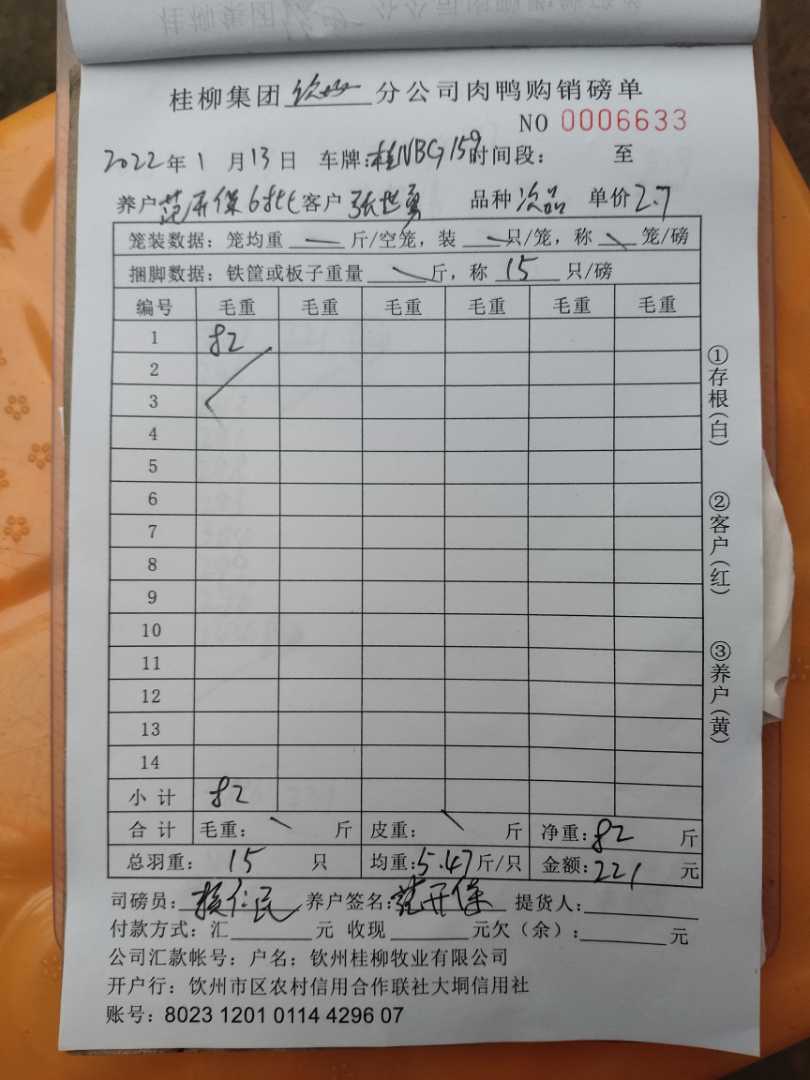 桂柳集团钦州分公司肉鸭购销磅单
NO 0006633
2022年1月13日 车牌:桂NBG159 时间段: 至
养户范开保6批 客户张世勇 品种次品 单价2.7
笼装数据: 笼均重 斤/空笼, 装 只/笼, 称 笼/磅
捆脚数据: 铁筐或板子重量 斤, 称 15 只/磅
编号 毛重 毛重 毛重 毛重 毛重 毛重
1 82
2
3
4
5
6
7
8
9
10
11
12
13
14
小计 82
合计 毛重: 斤 皮重: 斤 净重:82 斤
总羽重: 15 只 均重:5.47斤/只 金额:221 元
司磅员: 仁民 养户签名:范开保 提货人:
付款方式: 汇 元 收现 元欠(余): 元
公司汇款帐号: 户名: 钦州桂柳牧业有限公司
开户行: 钦州市区农村信用合作联社大垌信用社
账号: 8023 1201 0114 4296 07
①存根(白)
②客户(红)
③养户(黄)